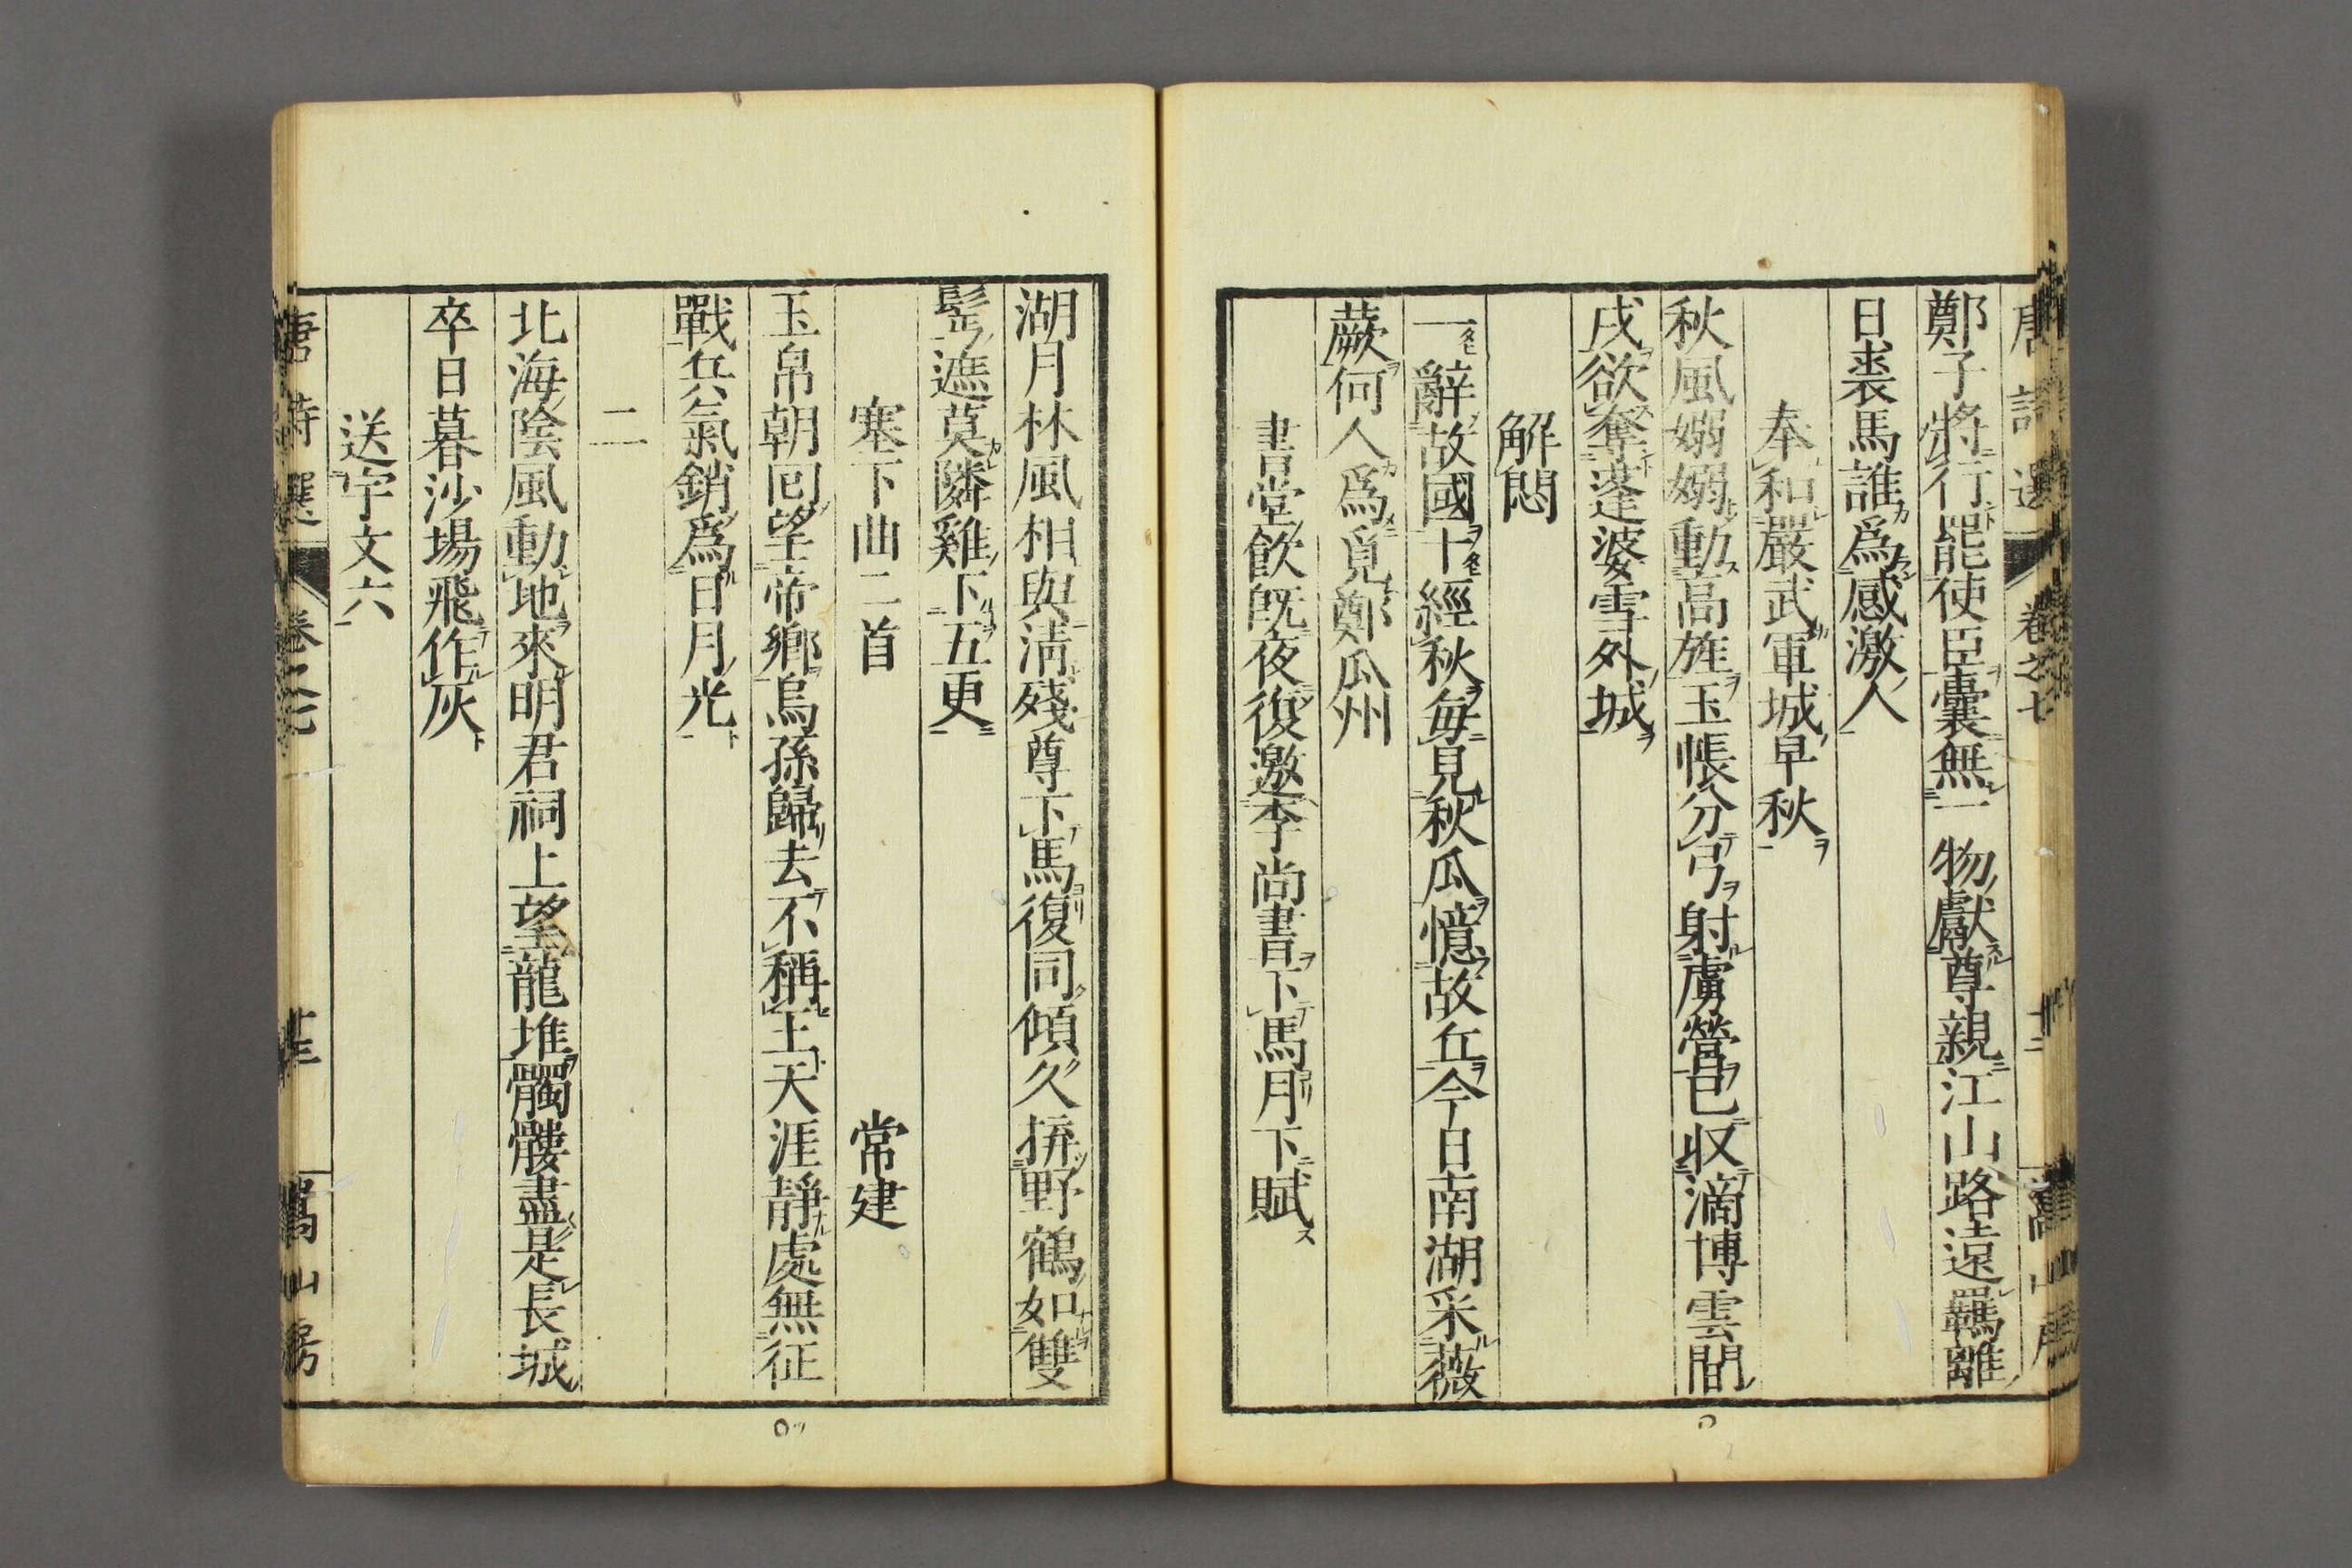 唐詩選 卷之七 十二 嵩山房
鄭子將行罷使臣囊無一物獻尊親江山路遠羈離
日裘馬誰爲感激人
奉和嚴武軍城早秋
秋風嫋嫋動高旌玉帳分弓射虜營已収滴博雲間
戍欲奪蓬婆雪外城
解悶
一辭故國十經秋每見秋瓜憶故丘今日南湖采薇
蕨何人爲覓鄭瓜州
書堂飲既夜復邀李尚書下馬月下賦
湖月林風相與淸殘尊下馬復同傾久拚野鶴如雙
髩遮莫隣雞下五更
塞下曲二首 常建
玉帛朝囘望帝鄉烏孫歸去不稱王天涯靜處無征
戰兵氣銷爲日月光
二
北海陰風動地來明君祠上望龍堆髑髏盡是長城
卒日暮沙場飛作灰
送宇文六
唐詩選 卷之七 十三 嵩山房